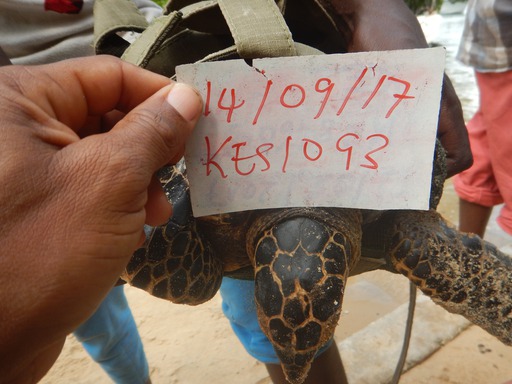 14/09/17
KES1093